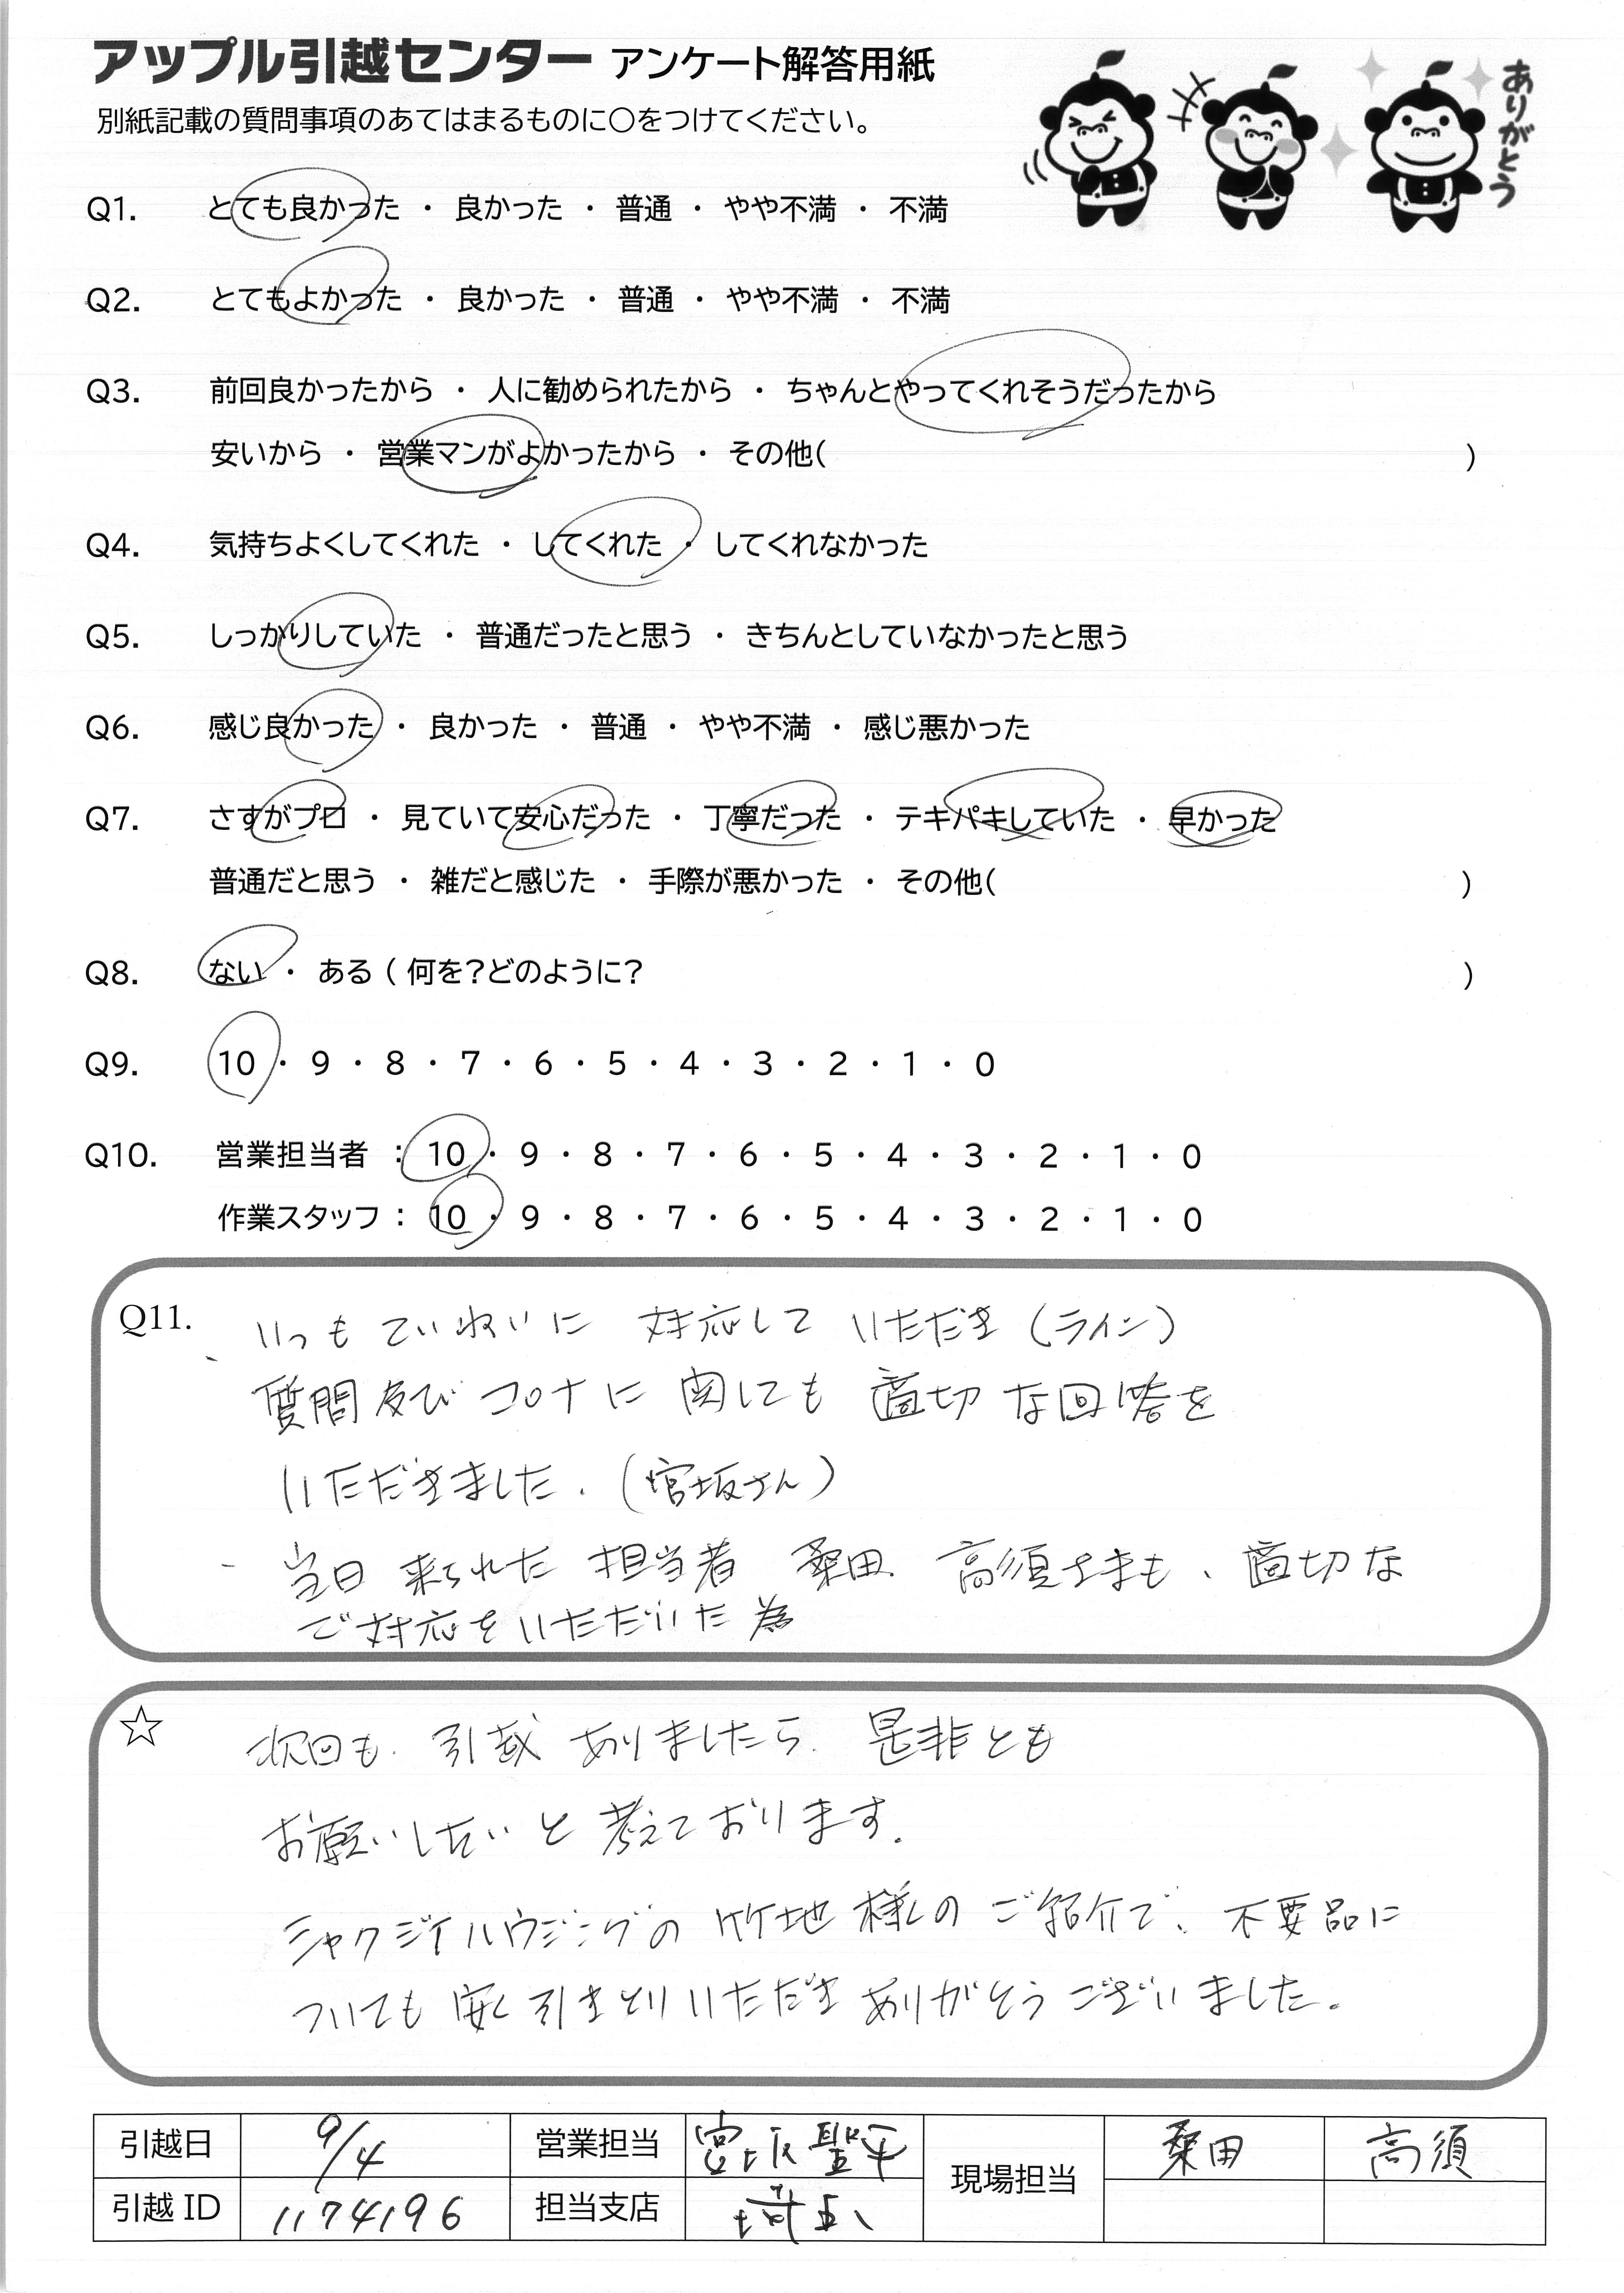 アップル引越センター アンケート解答用紙
別紙記載の質問事項のあてはまるものに○をつけてください。
ありがとう
Q1. とても良かった ・ 良かった ・ 普通 ・ やや不満 ・ 不満
Q2. とてもよかった ・ 良かった ・ 普通 ・ やや不満 ・ 不満
Q3. 前回良かったから ・ 人に勧められたから ・ ちゃんとやってくれそうだったから
安いから ・ 営業マンがよかったから ・ その他( )
Q4. 気持ちよくしてくれた ・ してくれた ・ してくれなかった
Q5. しっかりしていた ・ 普通だったと思う ・ きちんとしていなかったと思う
Q6. 感じ良かった ・ 良かった ・ 普通 ・ やや不満 ・ 感じ悪かった
Q7. さすがプロ ・ 見ていて安心だった ・ 丁寧だった ・ テキパキしていた ・ 早かった
普通だと思う ・ 雑だと感じた ・ 手際が悪かった ・ その他( )
Q8. ない ・ ある ( 何を?どのように? )
Q9. 10 ・ 9 ・ 8 ・ 7 ・ 6 ・ 5 ・ 4 ・ 3 ・ 2 ・ 1 ・ 0
Q10. 営業担当者 : 10 ・ 9 ・ 8 ・ 7 ・ 6 ・ 5 ・ 4 ・ 3 ・ 2 ・ 1 ・ 0
作業スタッフ : 10 ・ 9 ・ 8 ・ 7 ・ 6 ・ 5 ・ 4 ・ 3 ・ 2 ・ 1 ・ 0
Q11. いつもていねいに 対応して いただき (ライン)
質問及び コロナに 関しても 適切な回答を
いただきました. (宮坂さん)
当日 来られた 担当者 桑田. 高須さまも、適切な
ご対応をいただいた為
☆ 次回も. 引越 ありましたら. 是非とも
お願いしたいと 考えております.
シャクジイハウジングの 竹地様の ご紹介で、不要品に
ついても 安く引きとりいただき ありがとうございました.
引越日 9/4 営業担当 宮坂聖平 現場担当 桑田 高須
引越 ID 1174196 担当支店 埼玉